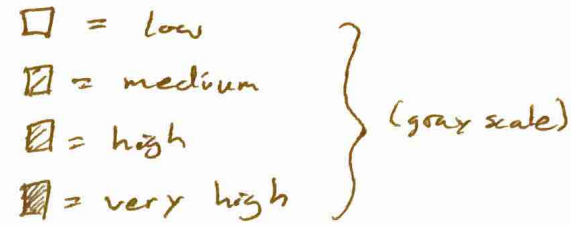 = low
= medium
= high
= very high
(gray scale)